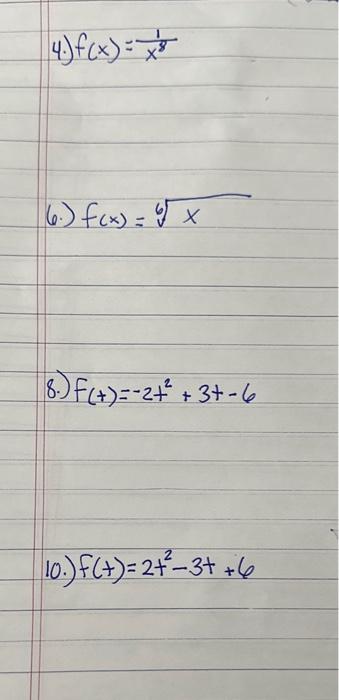 4.) f(x) = 1/x⁸
6.) f(x) = ⁶√x
8.) f(t) = -2t² + 3t - 6
10.) f(t) = 2t² - 3t + 6